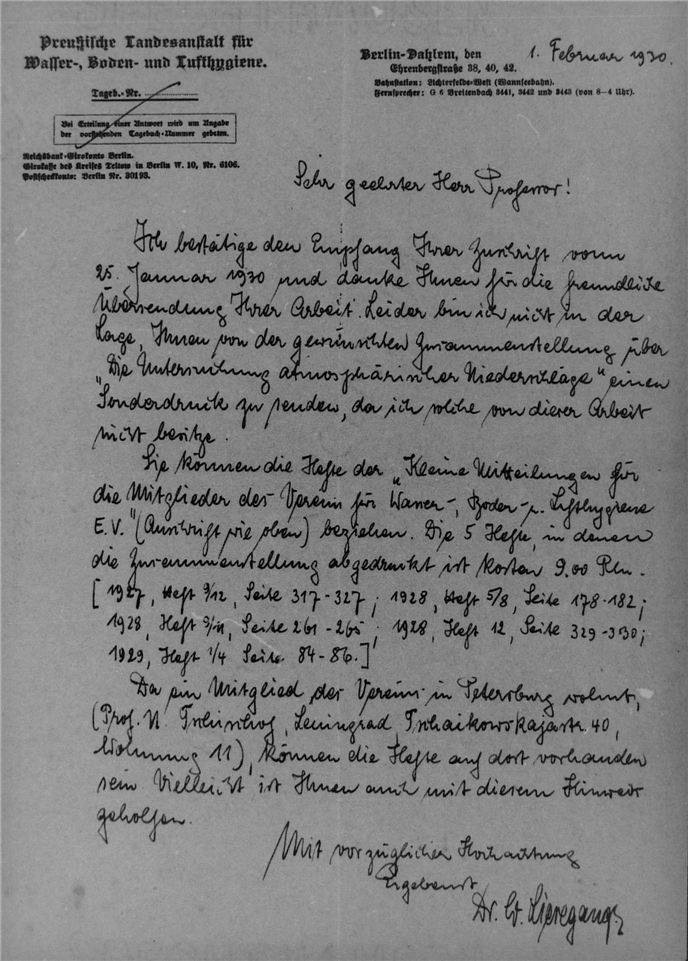 Preußische Landesanstalt für
Wasser-, Boden- und Lufthygiene.
Tageb.-Nr.
Bei Erteilung einer Antwort wird um Angabe
der vorstehenden Tagebuch-Nummer gebeten.
Reichsbank-Girokonto Berlin.
Girokasse des Kreises Teltow in Berlin W. 10, Nr. 6106.
Postscheckkonto: Berlin Nr. 30193.
Berlin-Dahlem, den 1. Februar 1930.
Ehrenbergstraße 38, 40, 42.
Bahnstation: Lichterfelde-West (Wannseebahn).
Fernsprecher: G 6 Breitenbach 3441, 3442 und 3443 (von 8–4 Uhr).
Sehr geehrter Herr Professor!
Ich bestätige den Empfang Ihrer Zuschrift vom
25. Januar 1930 und danke Ihnen für die freundliche
Übersendung Ihrer Arbeit. Leider bin ich nicht in der
Lage, Ihnen von der gewünschten Zusammenstellung über
"Die Untersuchung atmosphärischer Niederschläge" einen
Sonderdruck zu senden, da ich solche von dieser Arbeit
nicht besitze.
Sie können die Hefte der „Kleine Mitteilungen für
die Mitglieder des Vereins für Wasser-, Boden- u. Lufthygiene
E.V." (Anschrift wie oben) beziehen. Die 5 Hefte, in denen
die Zusammenstellung abgedruckt ist kosten 9.00 Rm.
[1927, Heft 9/12, Seite 317-327; 1928, Heft 5/8, Seite 178-182;
1928, Heft 9/11, Seite 261-265; 1928, Heft 12, Seite 329-330;
1929, Heft 1/4 Seite 84-86.]
Da ein Mitglied des Vereins in Petersburg wohnt,
(Prof. N. Leningrad, Tschaikowskajastr. 40,
Wohnung 11), können die Hefte auf dort vorhanden
sein Vielleicht ist Ihnen auch mit diesem Hinweis
geholfen.
Mit vorzüglicher Hochachtung
Ergebenst
Dr. W. Liesegang